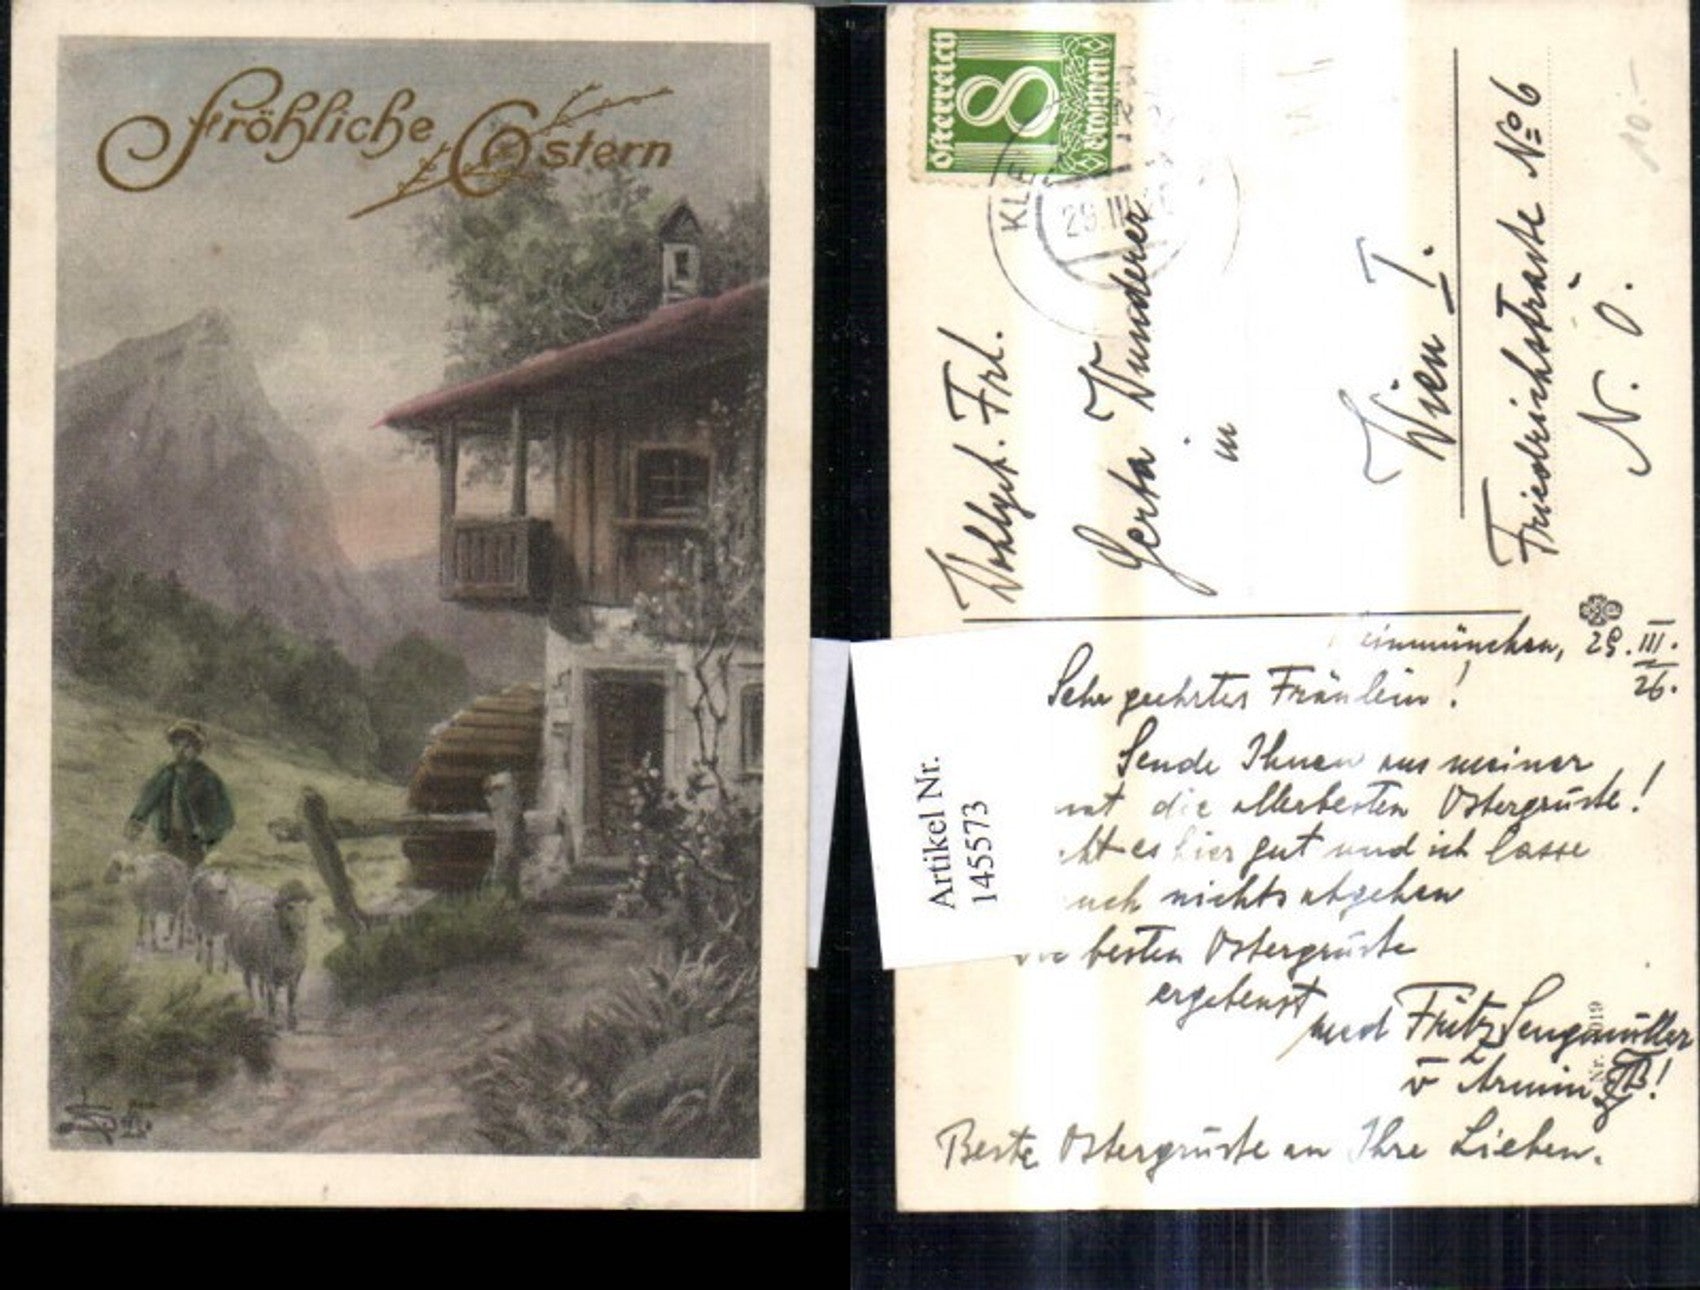 Fröhliche Ostern
Österreich
8
Groschen
KLE
29. III
10.-
Wohlget. Frl.
Gerta Wunderer
in
Wien I.
Friedrichstraße No 6
N. Ö.
Artikel Nr.
145573
einmünchen, 29. III.
26.
Sehr geehrtes Fräulein!
Sende Ihnen aus meiner
die allerbesten Ostergrüße!
es hier gut und ich lasse
nichts abgehen
besten Ostergrüße
ergebenst
und Fritz Sengmüller
v Armin
Beste Ostergrüße an Ihre Lieben.